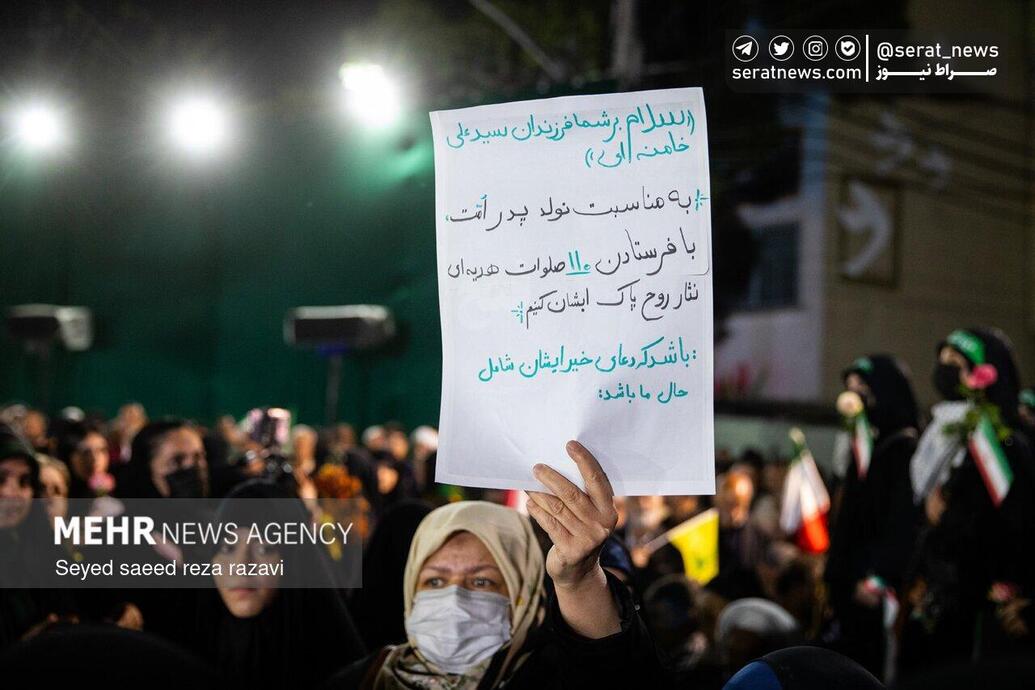 @serat_news
seratnews.com
صراط نیوز
((سلام بر شما فرزندان سید علی
خامنه ای))
به مناسبت تولد پدر امّت،
با فرستادن ۱۱۰ صلوات هدیه‌ای
نثار روح پاک ایشان کنیم
باشد که دعای خیر ایشان شامل
حال ما باشد:
MEHR NEWS AGENCY
Seyed saeed reza razavi